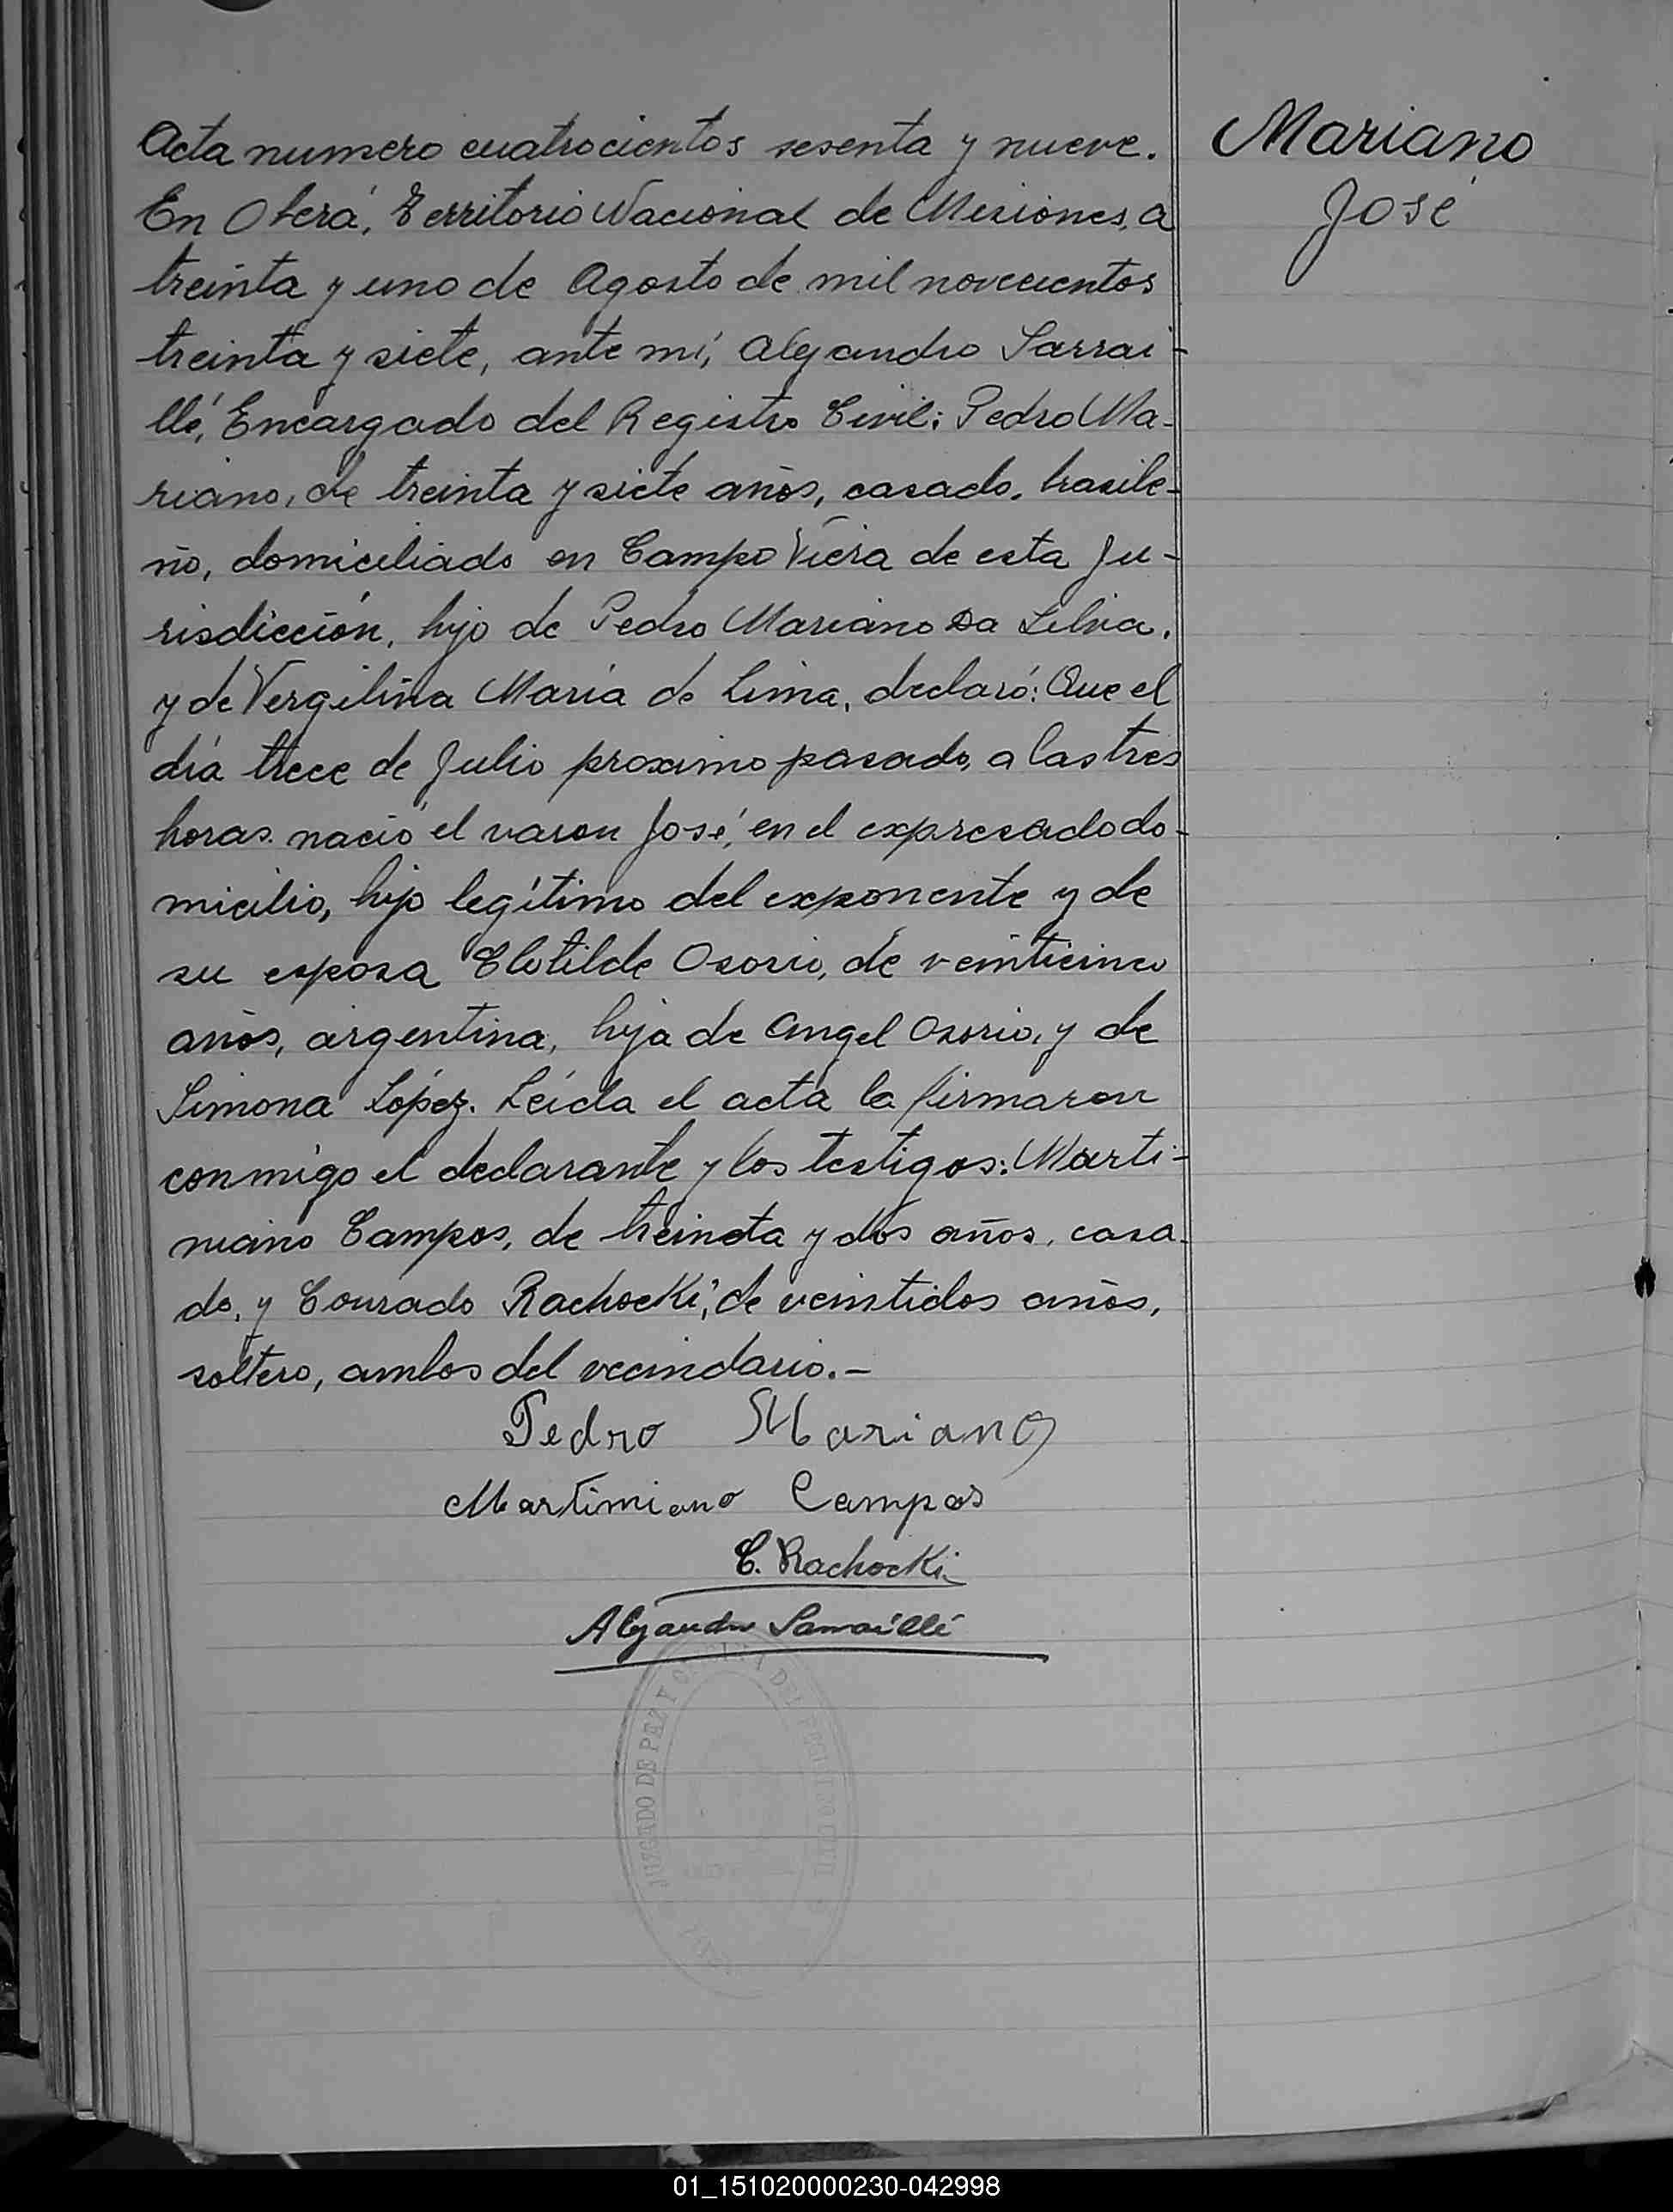 Acta numero cuatrocientos sesenta y nueve.
En Oberá, Territorio Nacional de Misiones, a
treinta y uno de Agosto de mil novecientos
treinta y siete, ante mí, Alejandro Sarrai-
llé, Encargado del Registro Civil: Pedro Ma-
riano, de treinta y siete años, casado, brasile-
ño, domiciliado en Campo Viera de esta Ju-
risdicción, hijo de Pedro Mariano Da Silva,
y de Vergilina María de Lima, declaró: Que el
día trece de Julio proximo pasado, a las tres
horas nació el varon José, en el expresado do-
micilio, hijo legítimo del exponente y de
su esposa Clotilde Osorio, de veinticinco
años, argentina, hija de Angel Osorio, y de
Simona López. Leída el acta la firmaron
conmigo el declarante y los testigos: Marti-
niano Campos, de treineta y dos años, casa-
do, y Conrado Rachocki, de veintidos años,
soltero, ambos del vecindario.-
Pedro Mariano
Martimiano Campos
C. Rachocki
Alejandro Sarraillé
JUZGADO DE PAZ Y
DEL REGISTRO CIVIL
Mariano
José
01_151020000230-042998